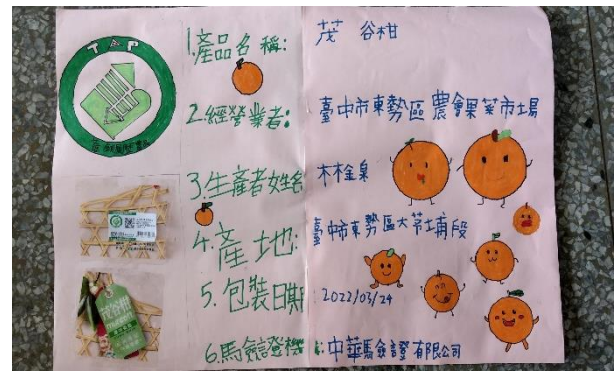 TAP
1.產品名稱:
茂谷柑
2.經營業者:
臺中市東勢區農會果菜市場
3.生產者姓名
林金泉
4.產地:
臺中市東勢區大茅埔段
5.包裝日期
2022/03/24
6.驗證機
:中華驗證有限公司
茂谷柑